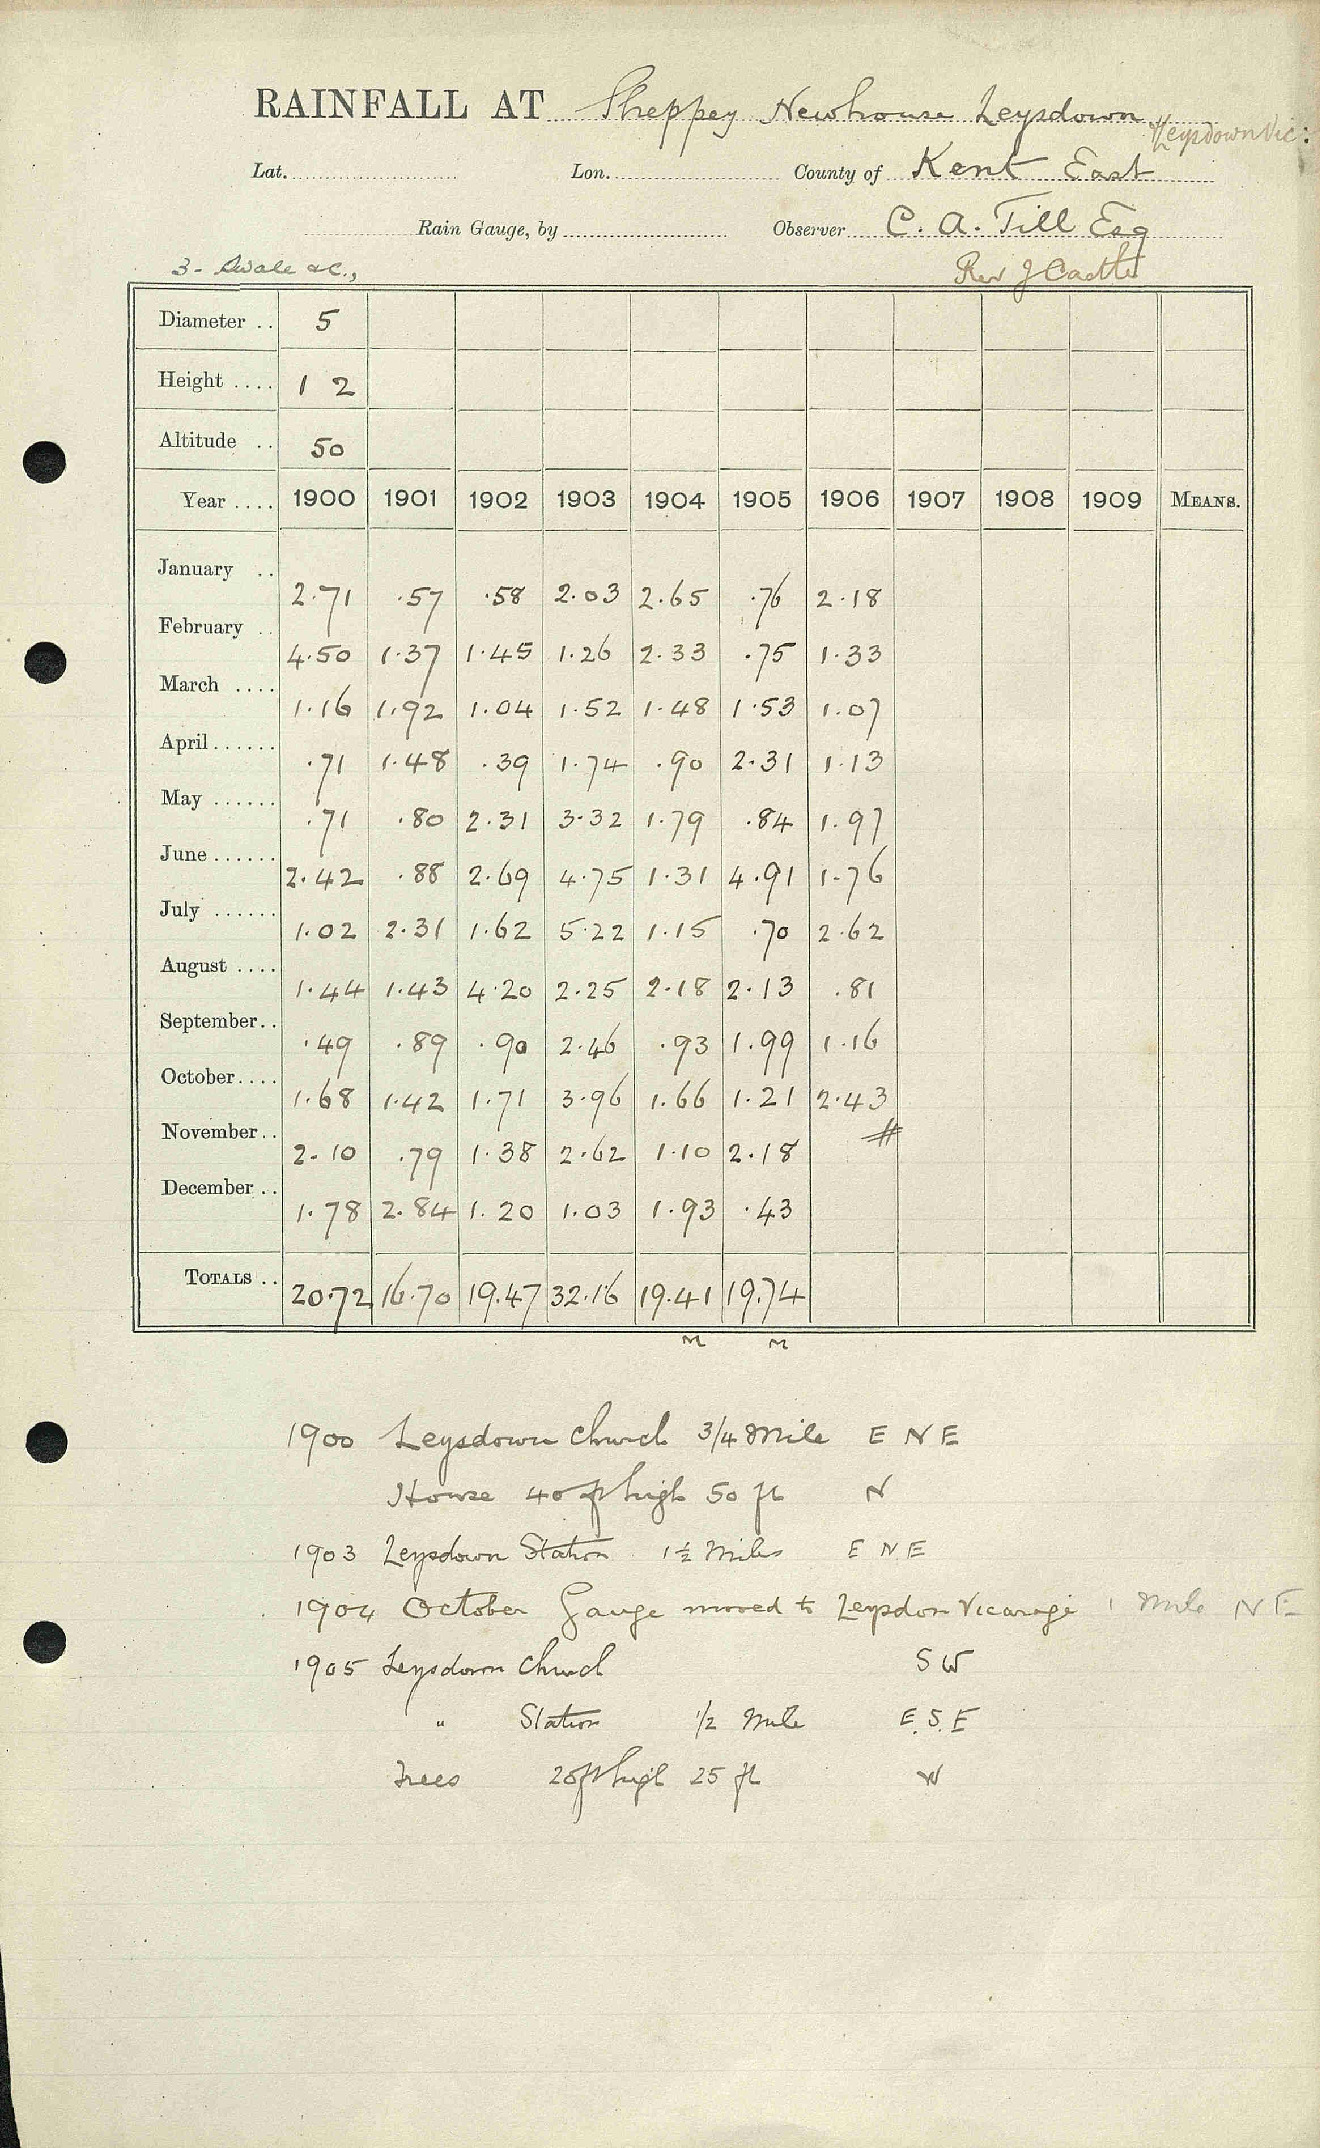 RAINFALL AT Sheppey Newhouse Leysdown
& Leysdown Vic:
Lat. Lon. County of Kent East
Rain Gauge, by Observer C. A. Till Esq
3 - Swale &c., Rev J Castle
Diameter .. 5
Height .... 1 2
Altitude .. 50
Year .... 1900 1901 1902 1903 1904 1905 1906 1907 1908 1909 MEANS.
January .. 2.71 .57 .58 2.03 2.65 .76 2.18
February .. 4.50 1.37 1.45 1.26 2.33 .75 1.33
March .... 1.16 1.92 1.04 1.52 1.48 1.53 1.07
April ...... .71 1.48 .39 1.74 .90 2.31 1.13
May ...... .71 .80 2.31 3.32 1.79 .84 1.97
June ...... 2.42 .88 2.69 4.75 1.31 4.91 1.76
July ...... 1.02 2.31 1.62 5.22 1.15 .70 2.62
August .... 1.44 1.43 4.20 2.25 2.18 2.13 .81
September .. .49 .89 .90 2.46 .93 1.99 1.16
October .... 1.68 1.42 1.71 3.96 1.66 1.21 2.43
November .. 2.10 .79 1.38 2.62 1.10 2.18 #
December .. 1.78 2.84 1.20 1.03 1.93 .43
TOTALS .. 20.72 16.70 19.47 32.16 19.41 19.74
M M
1900 Leysdown Church 3/4 Mile E N E
House 40 ft high 50 ft N
1903 Leysdown Station 1½ Miles E N E
1904 October Gauge moved to Leysdon Vicarage 1 Mile N E
1905 Leysdown Church S W
" Station 1/2 Mile E. S. E
Trees 20 ft high 25 ft W